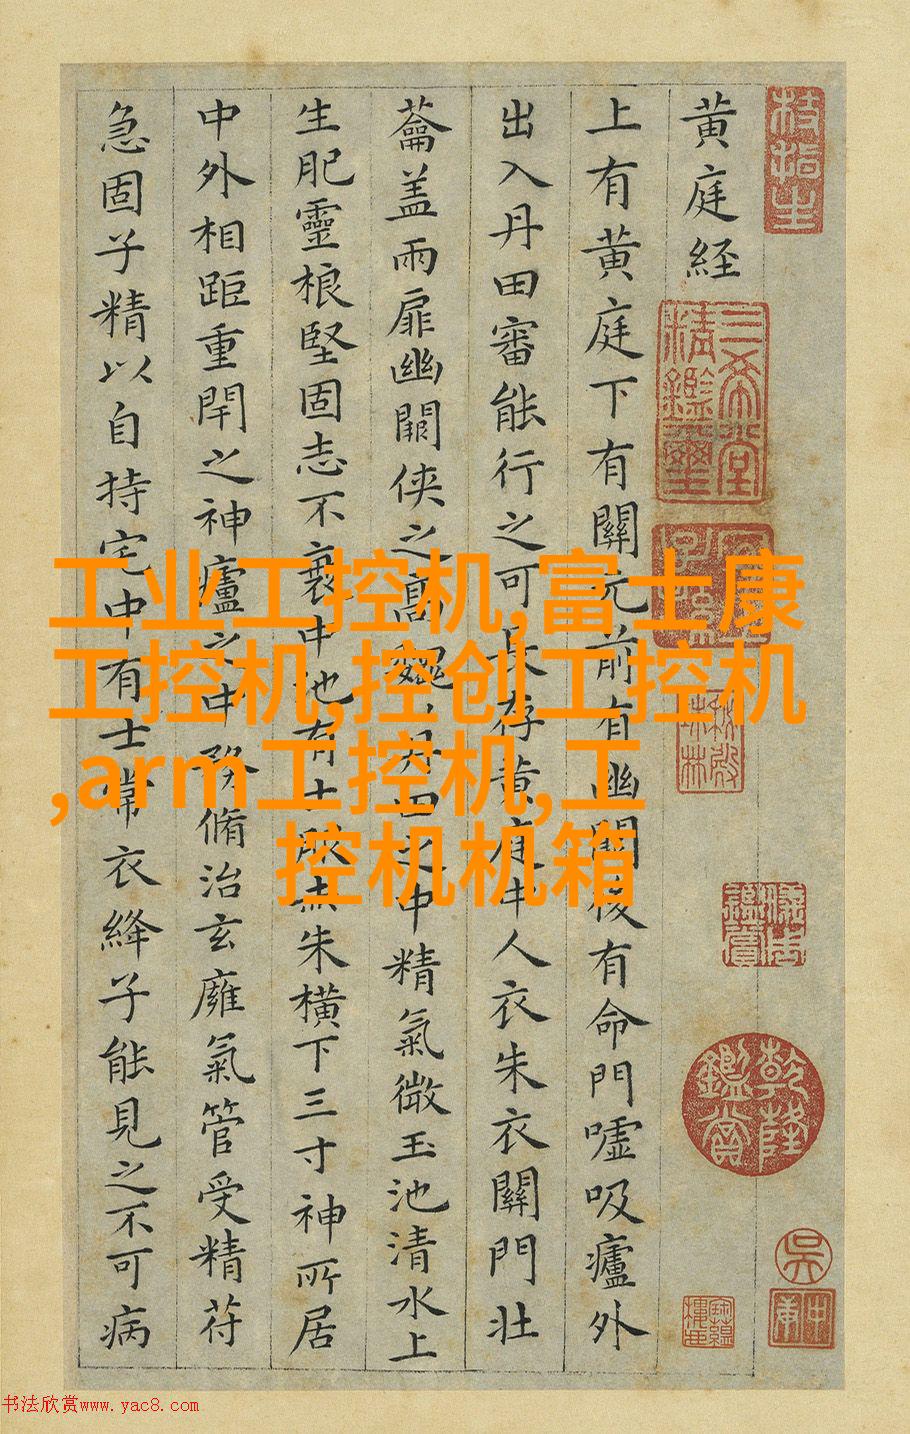 黄庭経
上有黄庭下有關元前有幽闕後有命門嘘吸廬外
出入丹田審能行之可長存黄庭中人衣朱衣關門壯
蘥盖兩扉幽闕侠之高巍巍丹田之中精氣微玉池清水上
生肥靈根堅固志不衰中池有士服赤朱横下三寸神所居
中外相距重閇之神廬之中務脩治玄廱氣管受精苻
急固子精以自持宅中有士常衣絳子能見之不可病
三希堂精鑑璽
乾隆鑑賞
吳
工业工控机,富士康
工控机,控创工控机
,arm工控机,工
控机机箱
书法欣赏www.yac8.com